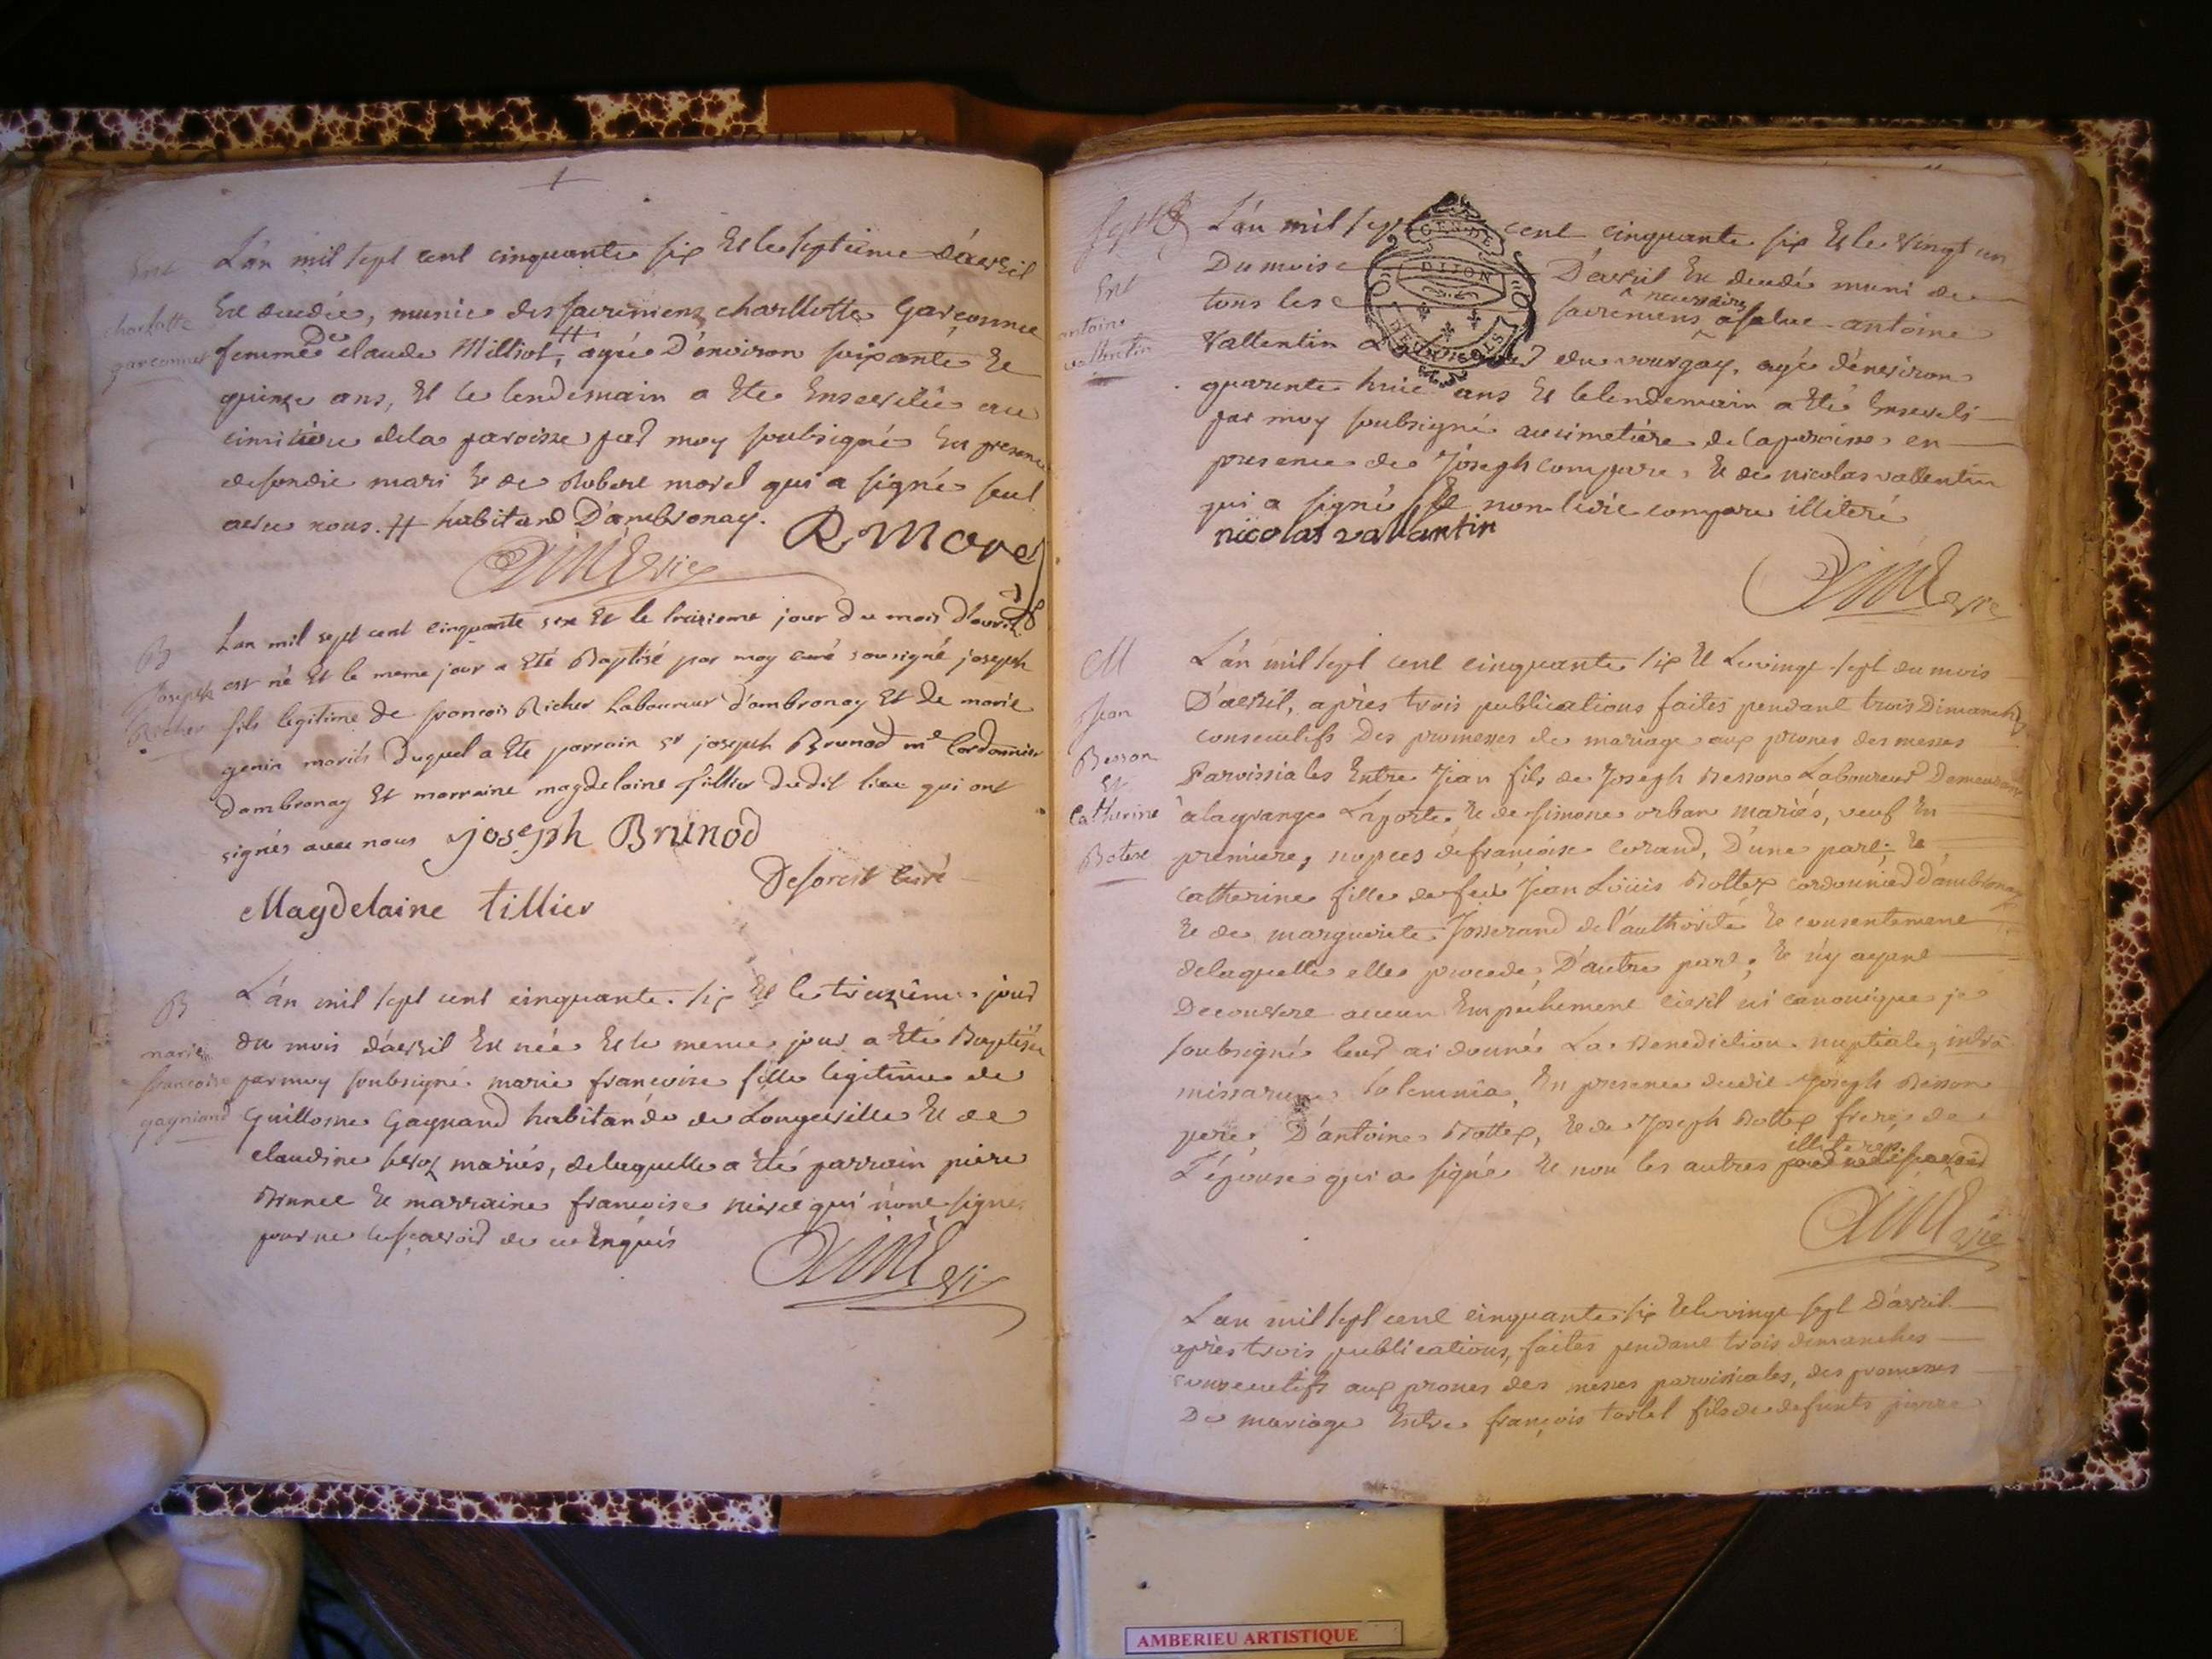 Ent
charlotte
garconnet
L'án mil sept cent cinquante six Et le septieme d'avril
Est decedée, munie des sacremens charllotte Garconnet
femme de claude Milliot, # agée D'environ soixante Et
quinze ans, Et le lendemain a Eté Ensevelie au
cimitiere de la paroisse par moy soubsigné En presence
de sondit mari Et de Robert morel qui a signé seul
avec nous. # habitand D'ambronay.
R Morel
B
Joseph
Richer
Lan mil sept cent cinquante six Et le treizieme jour du mois d'avril
est né Et le meme jour a Eté Baptisé par moy curé sousigné joseph
fils legitime de francois Richer Laboureur d'ambronay Et de marie
genin mariés Duquel a Ete parrain Sr joseph Brunod me Cordonnier
dambronay Et marraine magdelaine tillier dudit lieu qui ont
signés avec nous joseph Brunod
Magdelaine tillier
curé
B
marie
francoise
gagniand
L'án mil sept cent cinquante. six Et le treizieme jour
du mois d'avril Est née Et le meme jour a Eté Baptisée
par moy soubsigné marie francoise fille legitime de
Guillosme Gagnand habitand de Longeville Et de
claudine mariés, de laquelle a Eté parrain piere
Brunet Et marraine francoise qui n'ont signé
pour ne le scavoir de ce Enquis
Ent
antoine
vallentin
L'án mil sept cent cinquante six Et le vingt un
Du mois D'avril Est decedé muni de
GEN DE
DIJON
tous les sacremens necessaires a salut antoine
Vallentin du vourgay, agé d'environ
quarente huit ans Et le lendemain a Eté Enseveli
par moy soubsigné au cimetiére de la paroisse en
presence de Joseph compare, Et de nicolas vallentin
qui a signé Et non ledit compare illiteré
nicolas vallantin
M
Jean
Besson
Et
Catherine
Botex
L'án mil sept cent cinquante six Et Le vingt sept du mois
D'avril, après trois publications faites pendant trois Dimanches
consecutifs Des promesses de mariage aux prones des messes
Parroissiales Entre Jean fils de Joseph Besson Laboureur Demeurant
à la grange Laporte Et de simone orban mariés, veuf En
premiere, nopces de francoise D'une part; Et
Catherine fille de feu Jean Loüis Bottex cordonnier d'ambronay
Et de marguerite Josserand de l'authorité Et consentement
de laquelle elle procede, D'autre part; Et n'y ayant
Decouvert aucun Empechement civil ni canonique je
soubsigné leur ai donné La Benediction nuptiale, intra
missarum solemnia, En presence dudit Joseph Besson
pere, D'antoine Bottex, Et de Joseph Bottex frere de
L'épouse qui a signé Et non les autres illiteres
L'an mil sept cent cinquante six Et le vingt sept d'avril
après trois publications, faites pendant trois dimanches
consecutifs aux prones des messes parroissiales, des promesses
De mariage Entre françois tortel fils de defunts pierre
AMBERIEU ARTISTIQUE